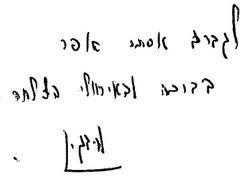 לגברת אסתי אפר
בברכה ובאיחולי הצלחה